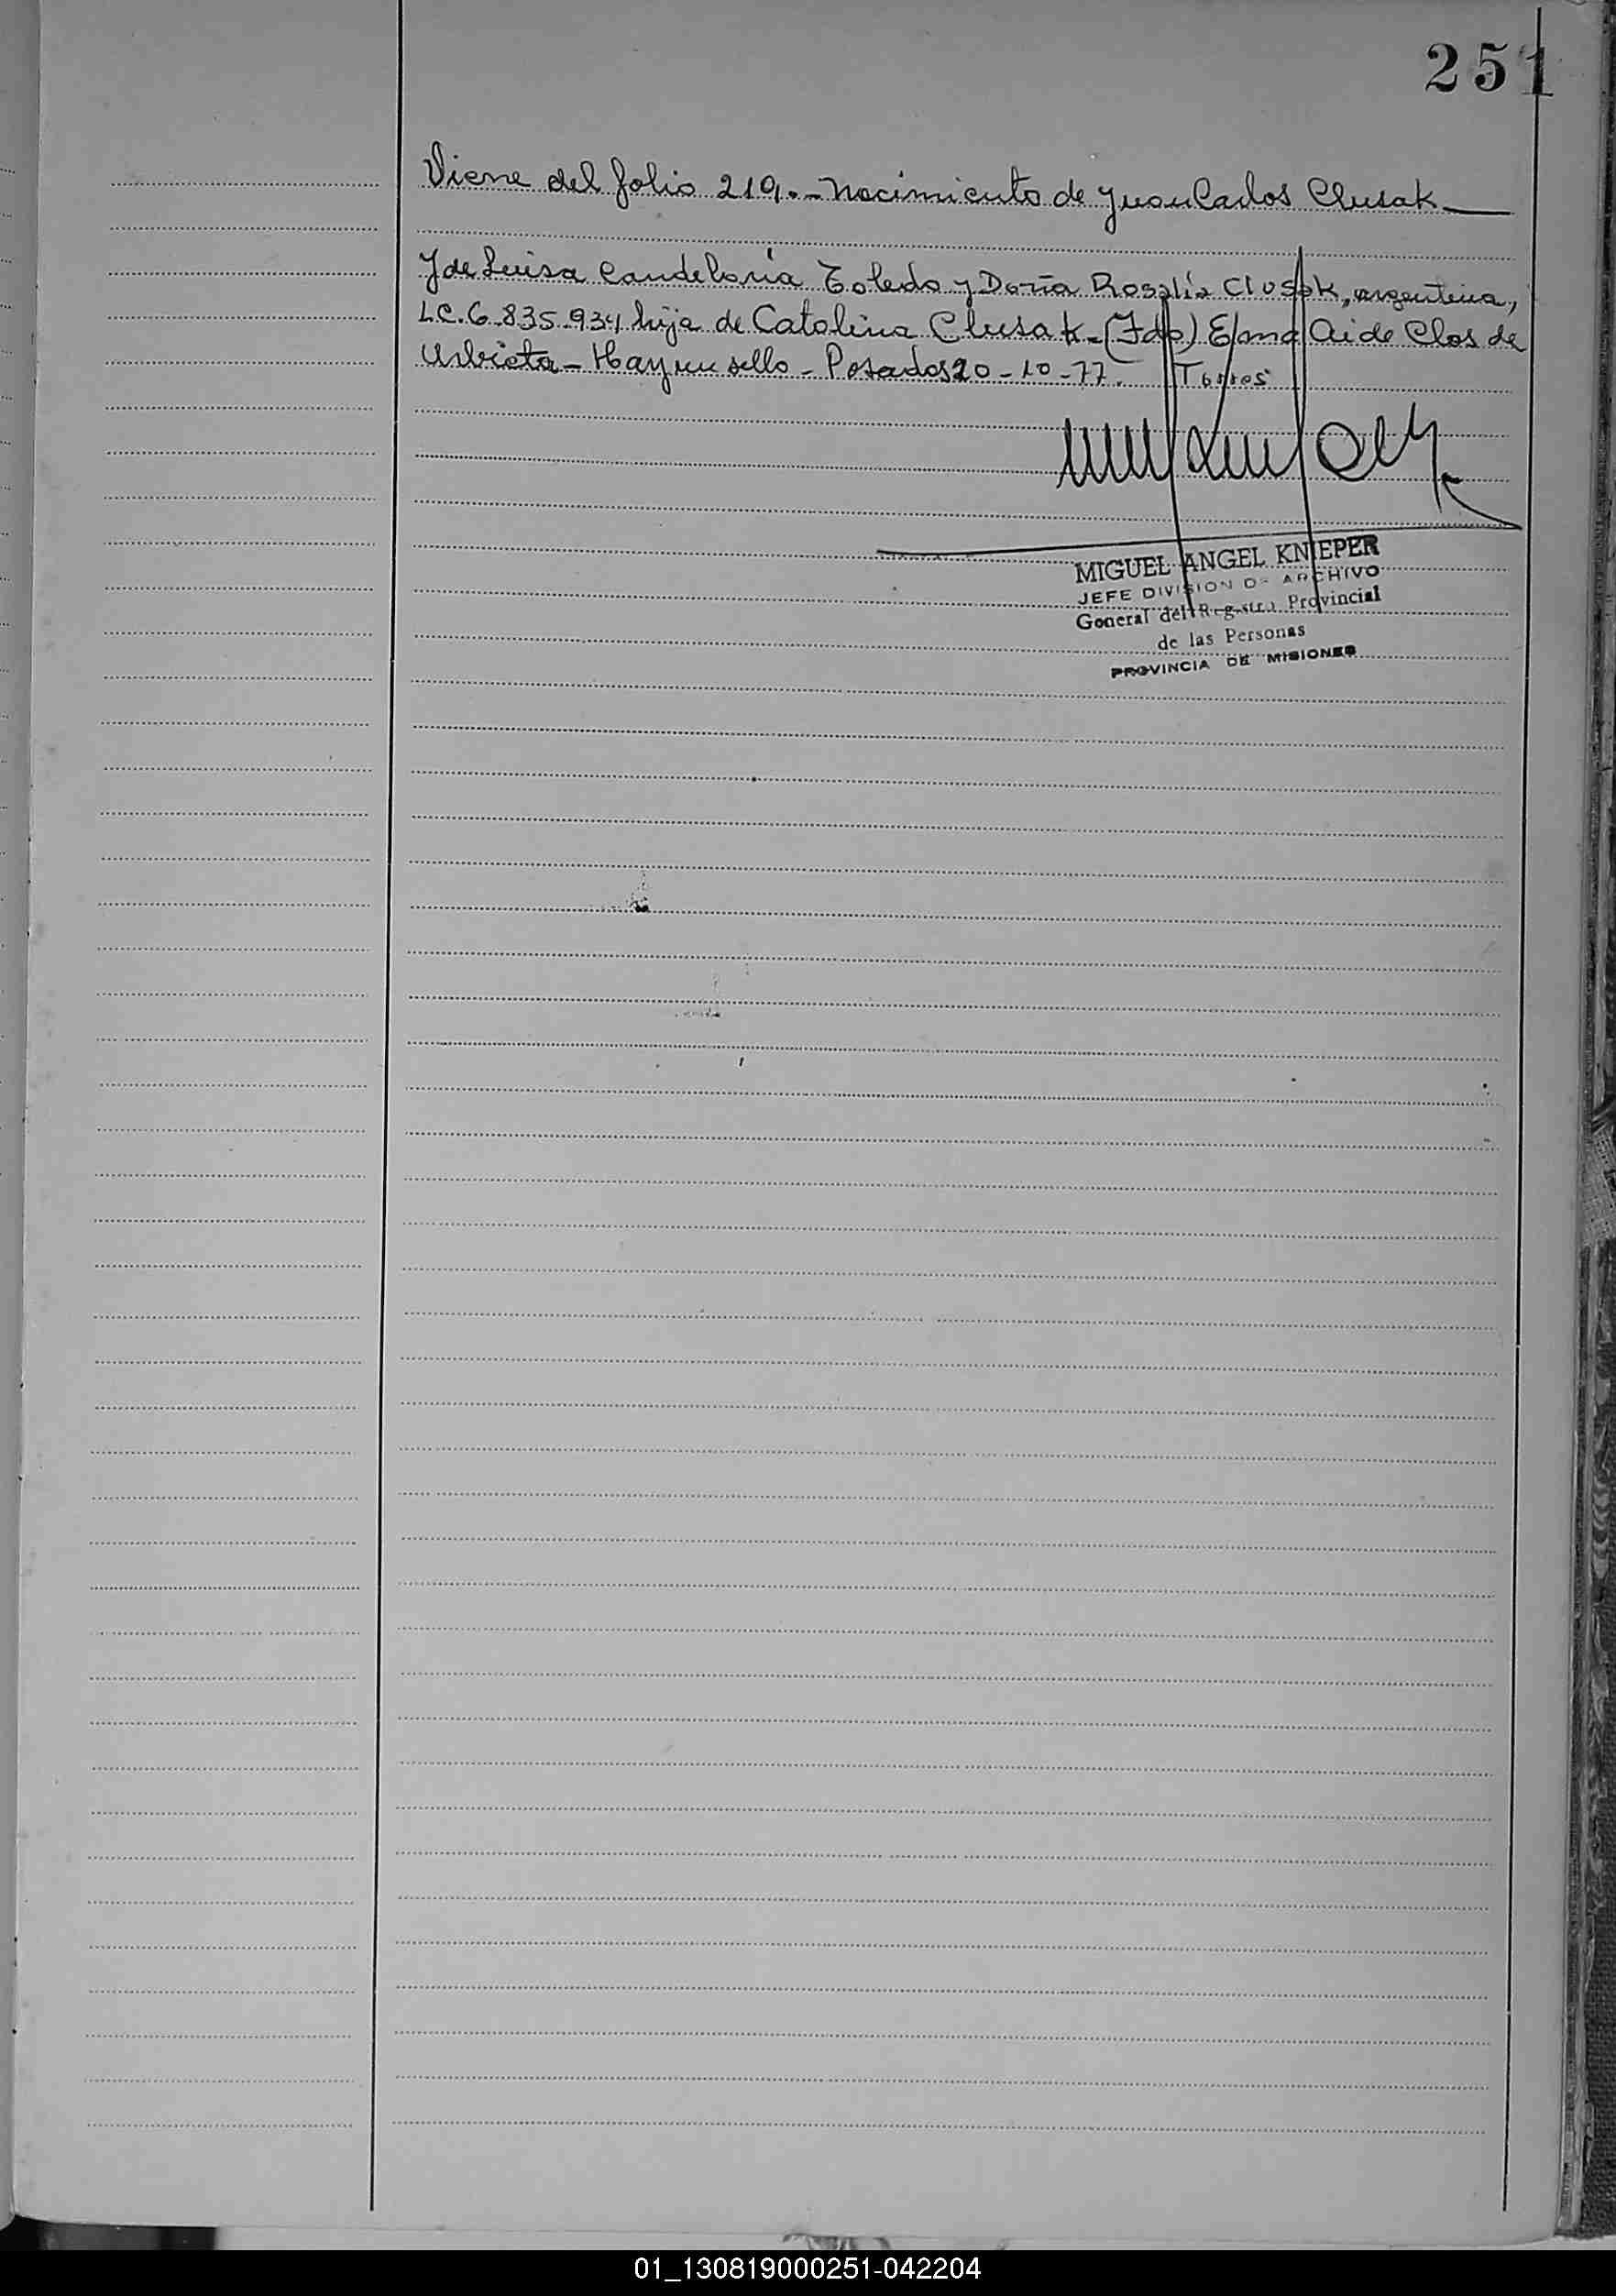 251
Viene del folio 219.- Nacimiento de Juan Carlos Clusak
Y de Luisa Candelaria Toledo y Doña Rosalía Clusak, argentina,
L.C. 6.835.934 hija de Catalina Clusak - (Fdo) Elma Aide Clos de
Urbieta - Hay un sello - Posadas 20-10-77. Torres
MIGUEL ANGEL KNIEPER
JEFE DIVISION DE ARCHIVO
General del Registro Provincial
de las Personas
PROVINCIA DE MISIONES
01_130819000251-042204